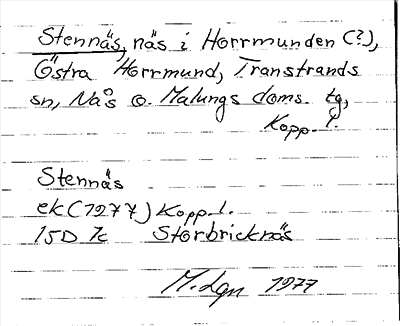 Stennäs, näs i Horrmunden (?),
Östra Horrmund, Transtrands
sn, Nås o. Malungs doms. tg,
Kopp. l.
Stennäs
ek (1977) Kopp. l.
15D 7c Storbricknäs
M. Lgn 1977